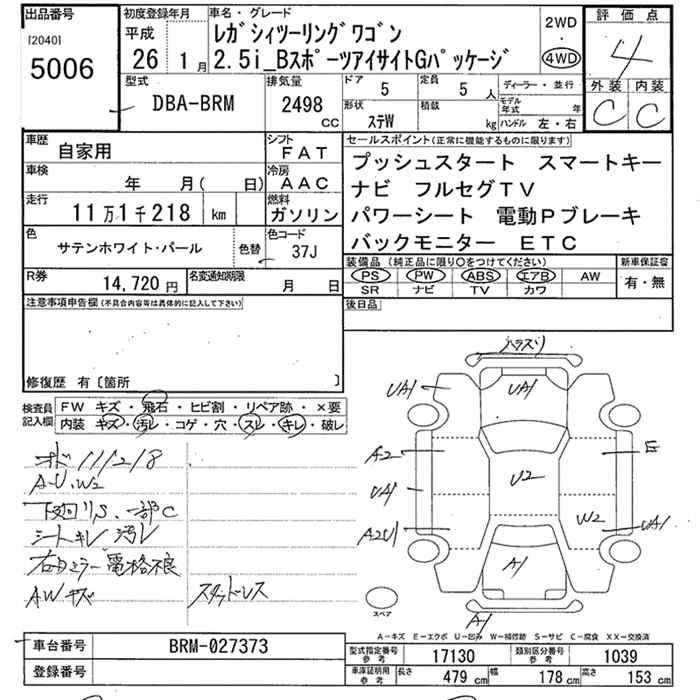 出品番号
[2040]
5006
初度登録年月
平成
26 1月
車名・グレード
レガシィツーリングワゴン
2.5i_BスポーツアイサイトGパッケージ
2WD
・
4WD
評価点
4
外装 内装
C C
型式
DBA-BRM
排気量
2498
CC
ドア
5
定員
5人
形状
ステW
積載
kg
ディーラー・並行
モデル年式 年
ハンドル 左・右
車歴
自家用
シフト
FAT
車検
年 月( 日)
冷房
AAC
走行
11万1千218 km
燃料
ガソリン
色
サテンホワイト・パール
色替
色コード
37J
R券
14,720円
名変通知期限
月 日
セールスポイント(正常に機能するものに限ります)
プッシュスタート スマートキー
ナビ フルセグTV
パワーシート 電動Pブレーキ
バックモニター ETC
装備品(純正品に限り○をつけてください)
PS PW ABS エアB AW
SR ナビ TV カワ
新車保証書
有・無
後日品
注意事項申告欄(不具合内容等は具体的に記入して下さい)
修復歴 有〔箇所 〕
検査員記入欄
FW キズ・飛石・ヒビ割・リペア跡・×要
内装 キズ・汚レ・コゲ・穴・スレ・キレ・破レ
オド 111218
A-U.W2
下廻りS.一部C
シートキレ 汚レ
右カミラー電格不良
AWキズ スタッドレス
UA1
UA1
A2
UA1
A2U1
U2
E
W2
UA1
A1
A1
スペア
A-キズ E-エクボ U-凹み W-補修跡 S-サビ C-腐食 XX-交換済
車台番号
BRM-027373
登録番号
型式指定番号 参考
17130
類別区分番号 参考
1039
車庫証明用 参考
長さ 479 cm
幅 178 cm
高さ 153 cm